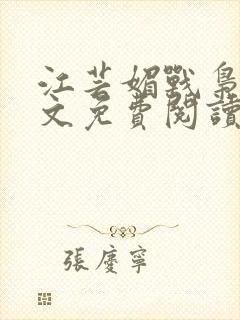 江芸媚戰梟
文免費閱讀
張慶寧